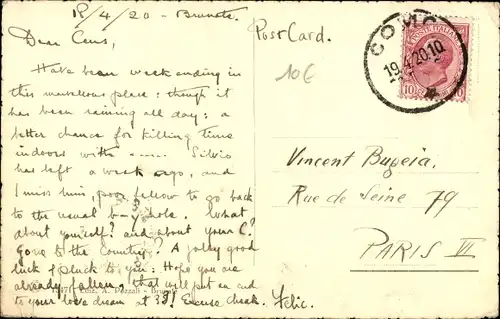 18/4/20 - Brunate.
Dear Cens,
Have been week ending in
this marvellous place: though it
has been raining all day: a
better chance for killing time
indoors with ------. Silvio
has left a week ago, and
I miss him, poor fellow to go back
to the usual b-y hole. What
about yourself? and about your C?
Gone to the Country? A jolly good
luck & pluck to you: Hope you are
already that will put an end
to your love dream at 33! Excuse cheek. Felic.
Ediz. A. Pozzoli - Brunate
PostCard.
10€
COMO
19.4.20.10
POSTE ITALIANE
10
Vincent Bugeia.
Rue de Seine 79
PARIS VI